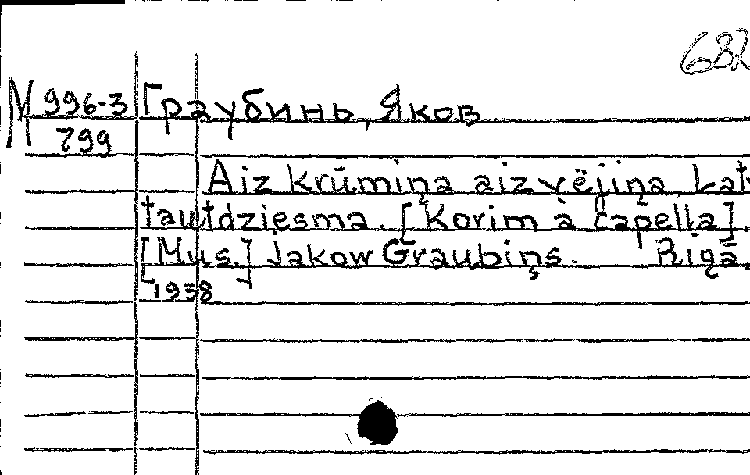 682
М 996-3 Граубинь, Яков
799
Aiz krūmiņa aiz vējiņa. Latv.
tautdziesma. [Korim à capella].
[Mus.] Jakow Graubiņs. Rīgā,
1938